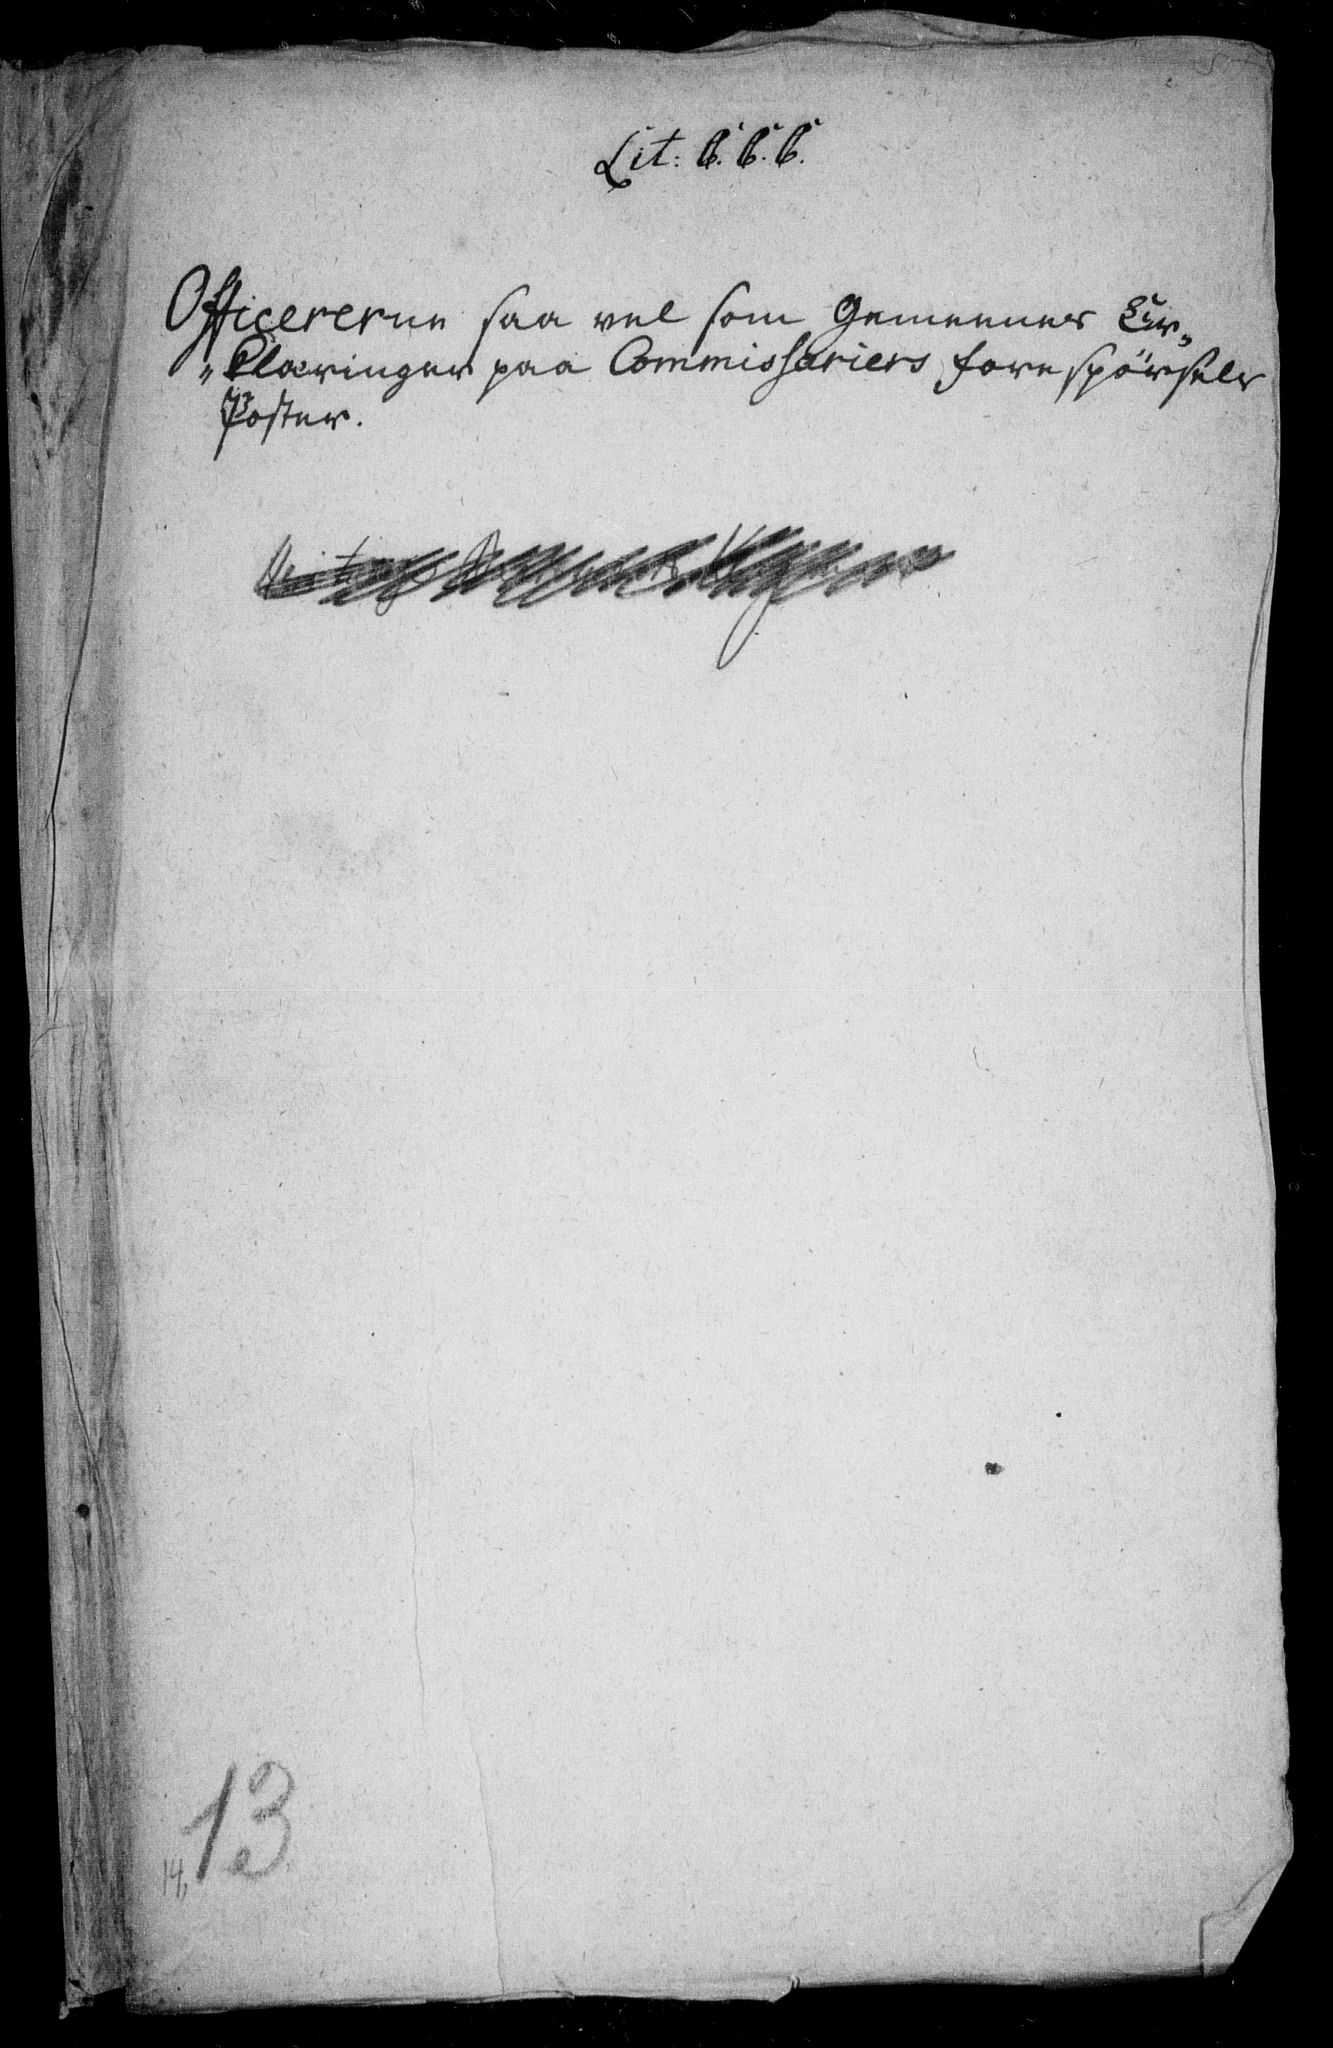 Lit: C. C. C.
Officererne saa vel som Gemeenes Er„
„Klæringer paa Commissariers forespörsels
Poster.
13
14,